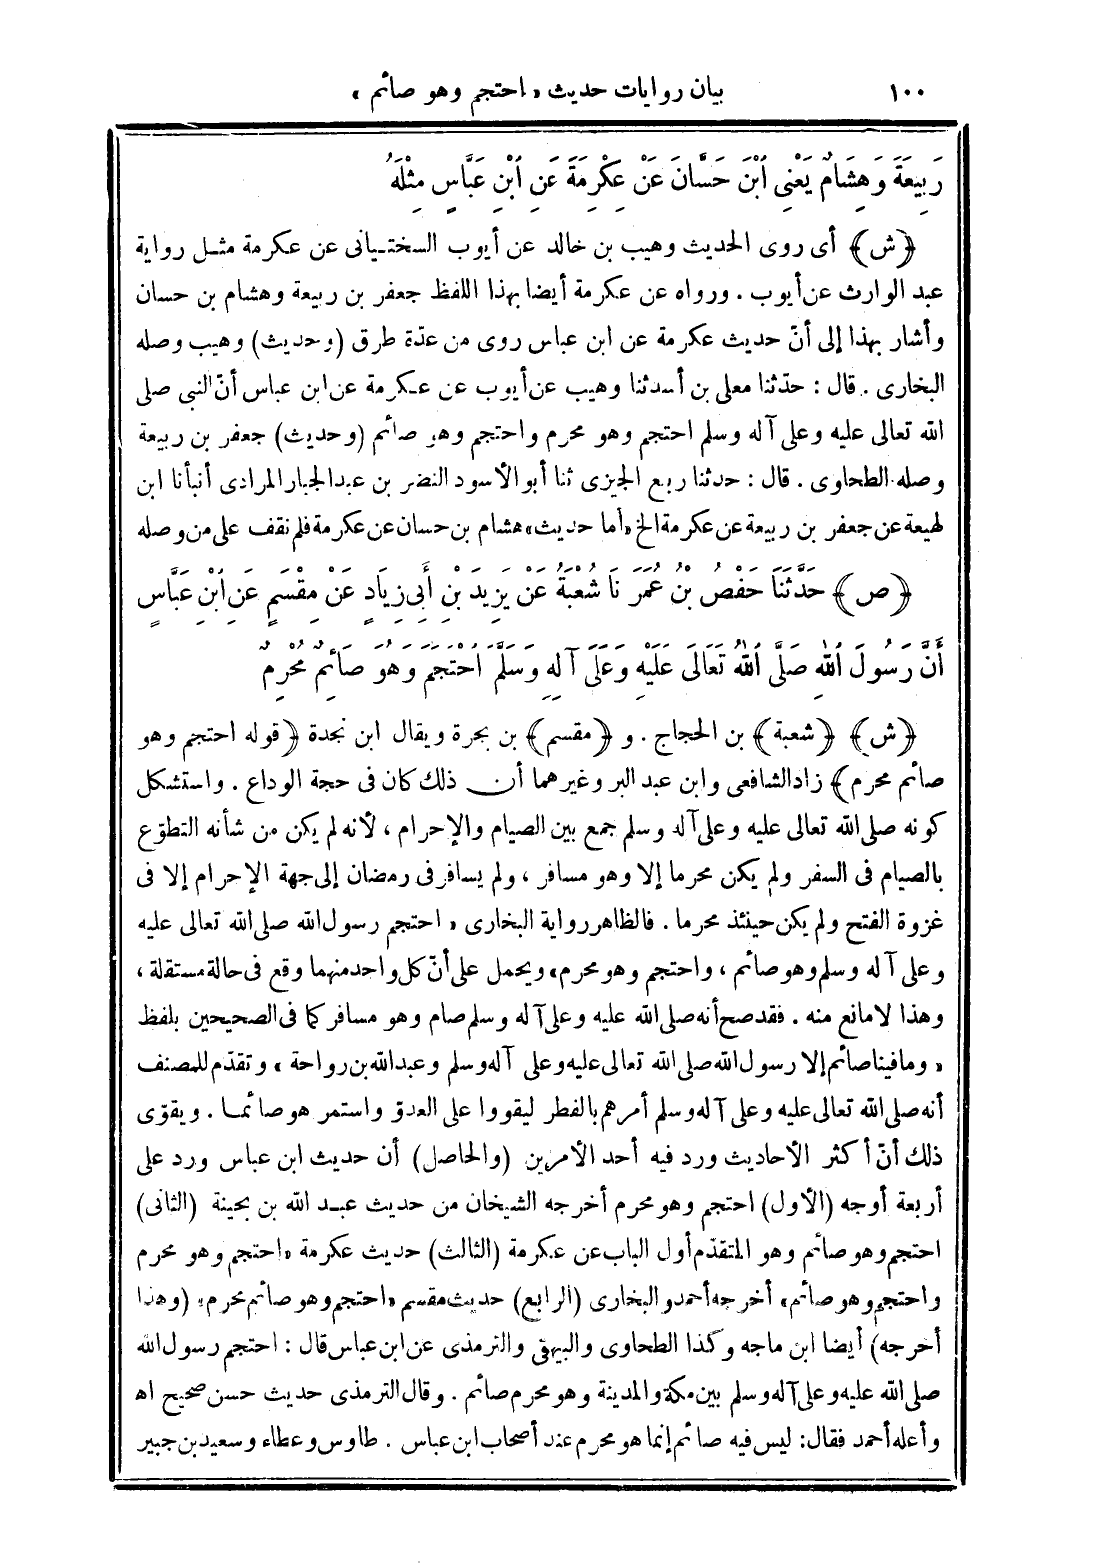 ١٠٠ بيان روايات حديث « احتجم وهو صائم »
رَبِيعَةَ وَهِشَامٌ يَعْنِي ابْنَ حَسَّانَ عَنْ عِكْرِمَةَ عَنِ ابْنِ عَبَّاسٍ مِثْلَهُ
﴿ش﴾ أى روى الحديث وهيب بن خالد عن أيوب السختيانى عن عكرمة مثل رواية
عبد الوارث عن أيوب . ورواه عن عكرمة أيضا بهذا اللفظ جعفر بن ربيعة وهشام بن حسان
وأشار بهذا إلى أنّ حديث عكرمة عن ابن عباس روى من عدّة طرق (وحديث) وهيب وصله
البخارى . قال : حدّثنا معلى بن أسد ثنا وهيب عن أيوب عن عكرمة عن ابن عباس أنّ النبى صلى
الله تعالى عليه وعلى آله وسلم احتجم وهو محرم واحتجم وهو صائم (وحديث) جعفر بن ربيعة
وصله الطحاوى . قال : حدثنا ربيع الجيزى ثنا أبو الأسود النضر بن عبد الجبار المرادى أنبأنا ابن
لهيعة عن جعفر بن ربيعة عن عكرمة الخ «أما حديث» هشام بن حسان عن عكرمة فلم نقف على من وصله
﴿ص﴾ حَدَّثَنَا حَفْصُ بْنُ عُمَرَ نَا شُعْبَةُ عَنْ يَزِيدَ بْنِ أَبِى زِيَادٍ عَنْ مِقْسَمٍ عَنِ ابْنِ عَبَّاسٍ
أَنَّ رَسُولَ اللهِ صَلَّى اللهُ تَعَالَى عَلَيْهِ وَعَلَى آلِهِ وَسَلَّمَ احْتَجَمَ وَهُوَ صَائِمٌ مُحْرِمٌ
﴿ش﴾ ﴿شعبة﴾ بن الحجاج . و ﴿مقسم﴾ بن بجرة ويقال ابن نجدة ﴿قوله احتجم وهو
صائم محرم﴾ زاد الشافعى وابن عبد البر وغيرهما أن ذلك كان فى حجة الوداع . واستشكل
كونه صلى الله تعالى عليه وعلى آله وسلم جمع بين الصيام والإحرام ، لأنه لم يكن من شأنه التطوّع
بالصيام فى السفر ولم يكن محرما إلا وهو مسافر ، ولم يسافر فى رمضان إلى جهة الإحرام إلا فى
غزوة الفتح ولم يكن حينئذ محرما . فالظاهر رواية البخارى « احتجم رسول الله صلى الله تعالى عليه
وعلى آله وسلم وهو صائم ، واحتجم وهو محرم» ويحمل على أنّ كل واحد منهما وقع فى حالة مستقلة ،
وهذا لامانع منه . فقد صح أنه صلى الله عليه وعلى آله وسلم صام وهو مسافر كما فى الصحيحين بلفظ
« وما فينا صائم إلا رسول الله صلى الله تعالى عليه وعلى آله وسلم وعبد الله بن رواحة » وتقدّم للمصنف
أنه صلى الله تعالى عليه وعلى آله وسلم أمرهم بالفطر ليقووا على العدوّ واستمر هو صائما . ويقوّى
ذلك أنّ أكثر الأحاديث ورد فيه أحد الأمرين (والحاصل) أن حديث ابن عباس ورد على
أربعة أوجه (الأول) احتجم وهو محرم أخرجه الشيخان من حديث عبد الله بن بحينة (الثانى)
احتجم وهو صائم وهو المتقدّم أول الباب عن عكرمة (الثالث) حديث عكرمة «احتجم وهو محرم
واحتجم وهو صائم» أخرجه أحمد والبخارى (الرابع) حديث مقسم «احتجم وهو صائم محرم» (وهذا
أخرجه) أيضا ابن ماجه وكذا الطحاوى والبيهقى والترمذى عن ابن عباس قال : احتجم رسول الله
صلى الله عليه وعلى آله وسلم بين مكة والمدينة وهو محرم صائم . وقال الترمذى حديث حسن صحيح اه
وأعله أحمد فقال: ليس فيه صائم إنما هو محرم عند أصحاب ابن عباس . طاوس وعطاء وسعيد بن جبير